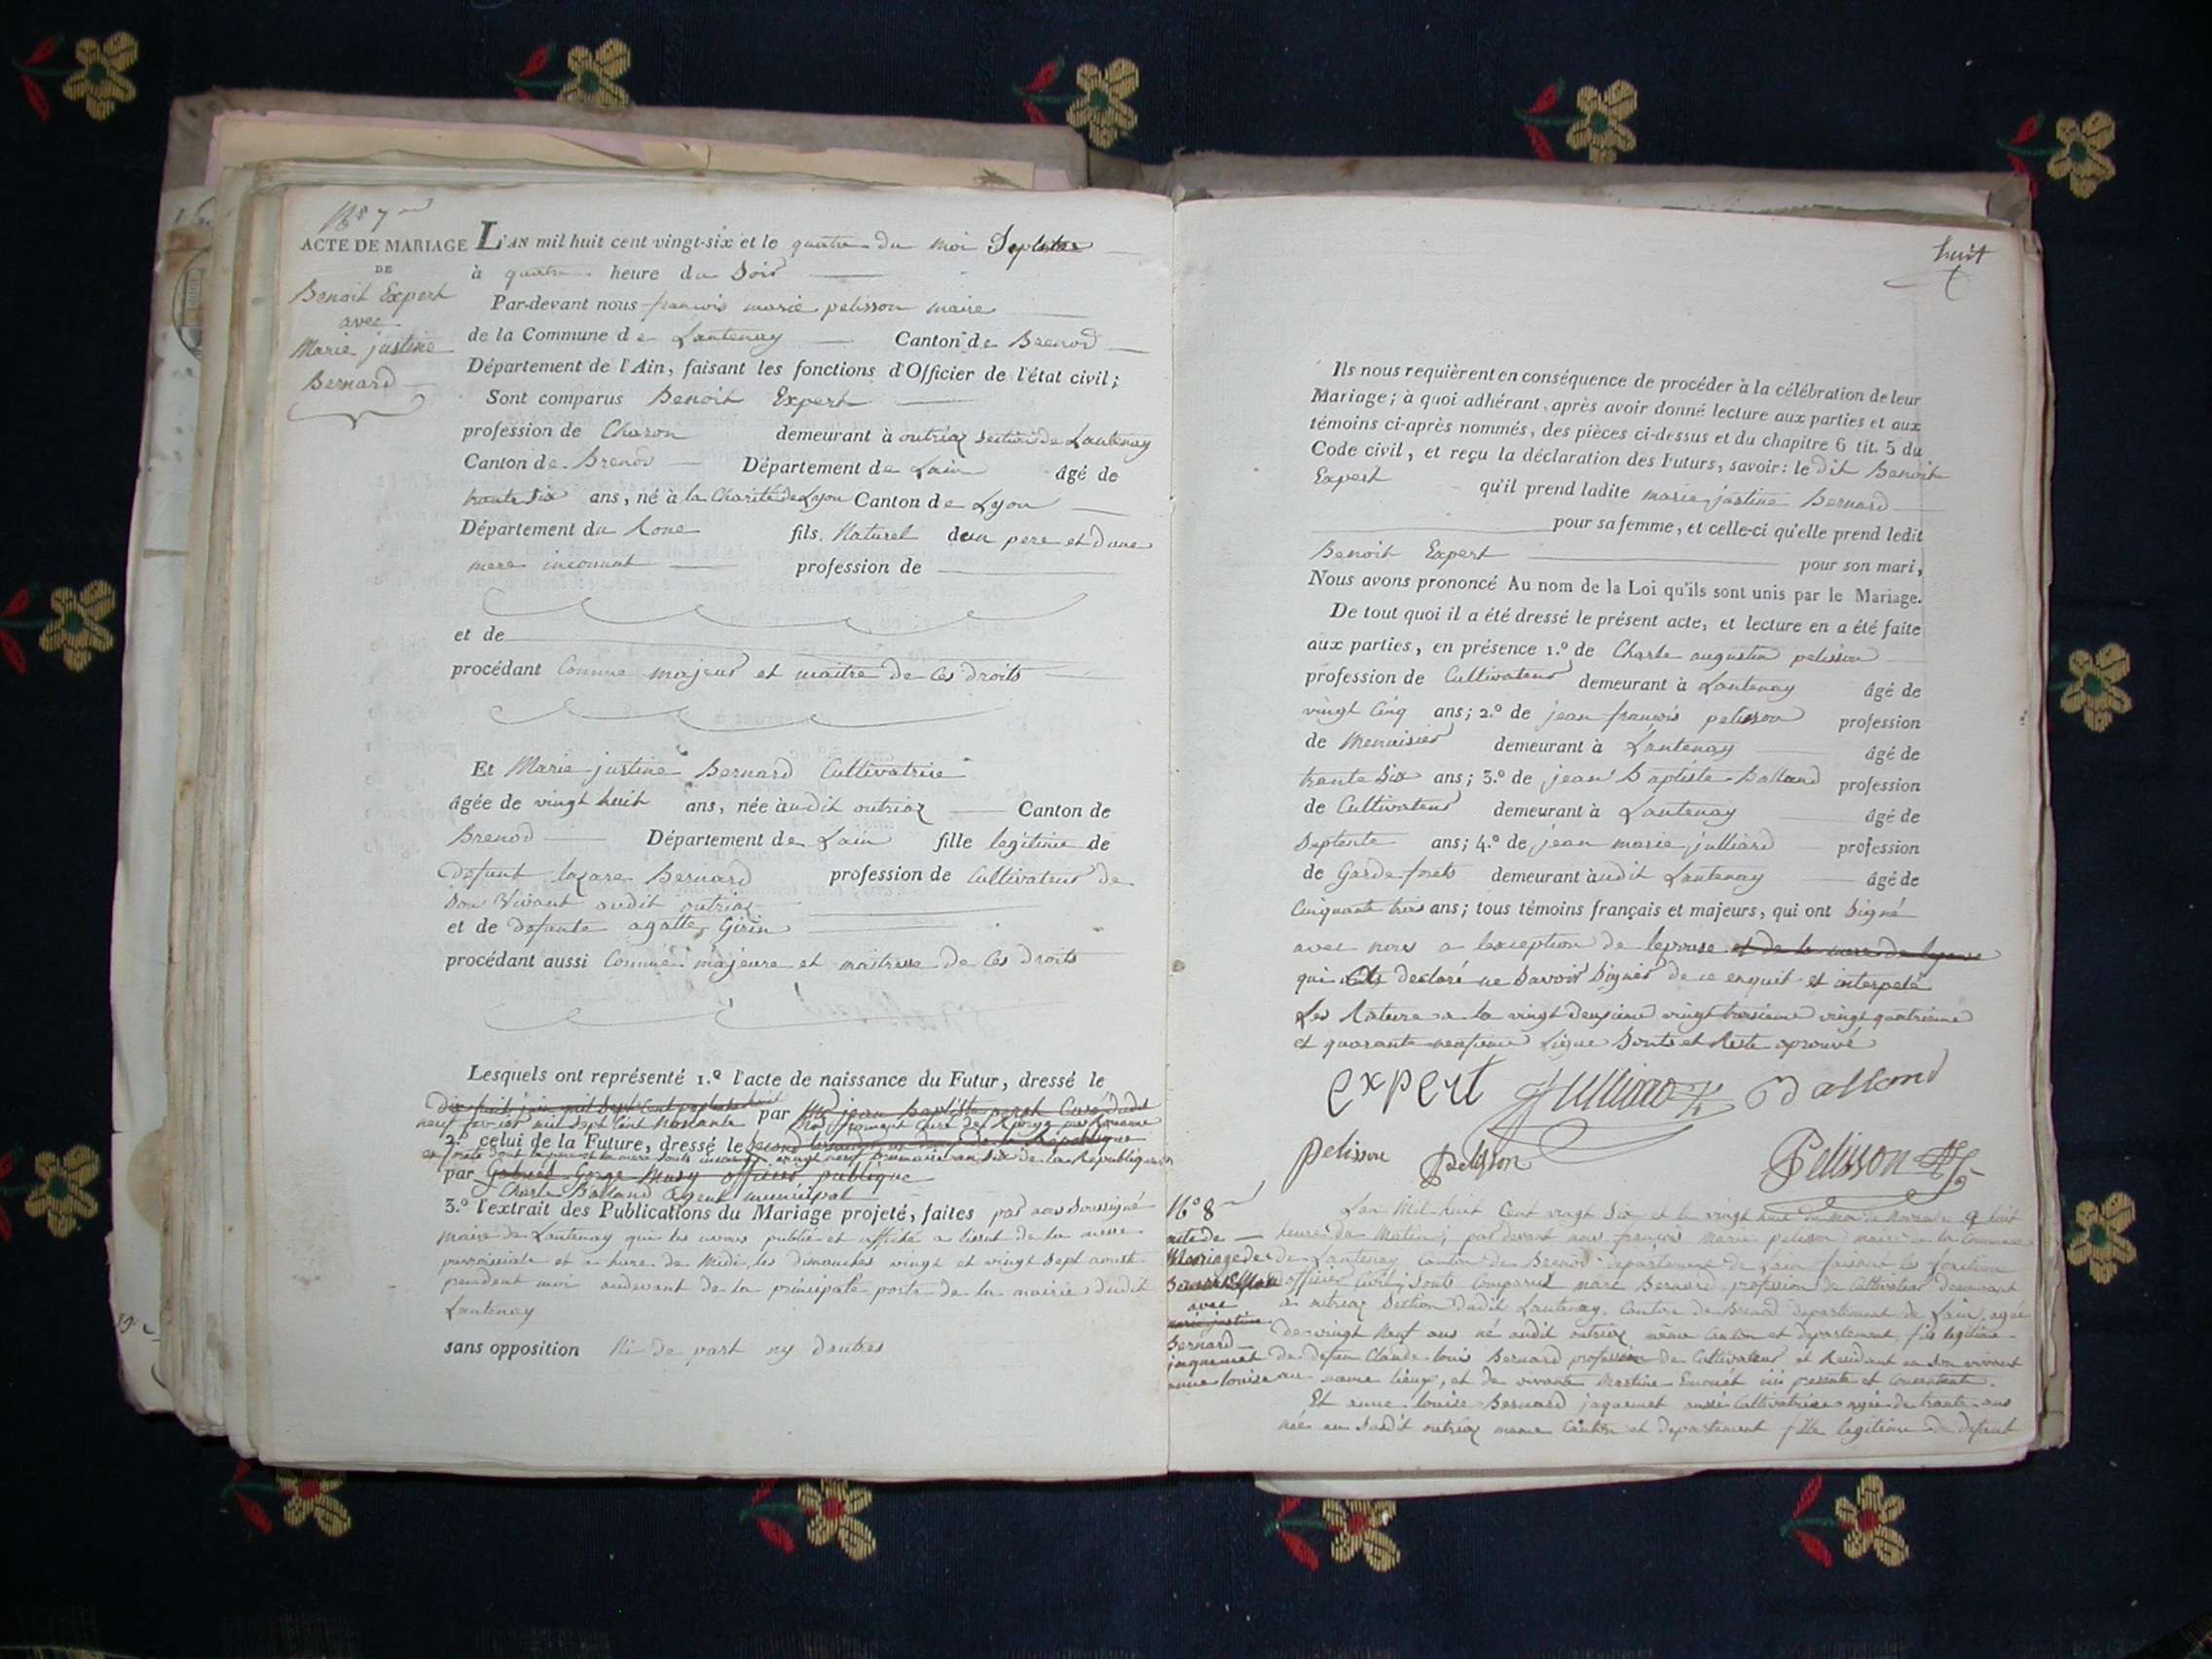 N° 7
ACTE DE MARIAGE
DE
Benoit Expert
avec
Marie justine
Bernard
L'AN mil huit cent vingt-six et le quatre du moi Septebre
à quatre heure du Soir
Par-devant nous francois marie pelisson maire
de la Commune de Lantenay Canton de Brenod
Département de l'Ain, faisant les fonctions d'Officier de l'état civil;
Sont comparus Benoit Expert
profession de Charon demeurant à outriaz section de Lantenay
Canton de Brenod Département de Lain âgé de
trante Six ans, né à la Charité de Lyon Canton de Lyon
Département du Rone fils Naturel dun pere et dune
mere inconnut profession de
et de
procédant Comme majeur et maitre de Ces droits
Et Marie justine Bernard Cultivatrice
âgée de vingt huit ans, née audit outriaz Canton de
Brenod Département de Lain fille legitime de
Defunt lazare Bernard profession de Cultivateur de
Son Vivant audit outriaz
et de Defunte agatte Girin
procédant aussi Comme majeure et maitresse de Ces droits
Lesquels ont représenté 1.° l'acte de naissance du Futur, dressé le
par
neuf fevrier mil sept Cent Nonante
2.° celui de la Future, dressé le
vingt neuf brumaire an Six de la Republique
par Gabriel Gorge Musy officier publique
Charle Balland agent municipal
3.° l'extrait des Publications du Mariage projeté, faites par nous Soussigné
maire de Lantenay qui les avons publié et affiché a lissut de la messe
parroissiale et a hure de Midi, les dimanches vingt et vingt Sept aoust
pendant moi audevant de la principale porte de la mairie dudit
Lantenay
sans opposition Ni de part ny dautres
huit
Ils nous requièrent en conséquence de procéder à la célébration de leur
Mariage; à quoi adhérant, après avoir donné lecture aux parties et aux
témoins ci-après nommés, des pièces ci-dessus et du chapitre 6 tit. 5 du
Code civil, et reçu la déclaration des Futurs, savoir: le dit Benoit
Expert qu'il prend ladite marie justine Bernard
pour sa femme, et celle-ci qu'elle prend ledit
Benoit Expert pour son mari,
Nous avons prononcé Au nom de la Loi qu'ils sont unis par le Mariage.
De tout quoi il a été dressé le présent acte, et lecture en a été faite
aux parties, en présence 1.° de Charle augustin pelisson
profession de Cultivateur demeurant à Lantenay âgé de
vingt Cinq ans; 2.° de jean francois pelisson profession
de Menuisier demeurant à Lantenay âgé de
trante Six ans; 3.° de jean Baptiste Balland profession
de Cultivateur demeurant à Lantenay âgé de
Septente ans; 4.° de jean marie julliard profession
de Garde forets demeurant audit Lantenay âgé de
Cinquante trois ans; tous témoins français et majeurs, qui ont Signé
avec nous a lexception de lepouse et de la mere de lepouse
qui declaré ne Savoir Signer de ce enquit et interpelé
Les Rature a la vingt deuxieme vingt troisieme vingt quatrieme
et quarante neufieme Ligne Sonts et Reste aprouvé
expert Julliard Balland
pelisson Pelisson Pelisson
N° 8
acte de
Mariage de
avec
marie justine
Bernard
jaquemet
anne louise
Lan Mil huit Cent vingt Six et le vingt huit du moi de Novembre a huit
heure du Matin; par devant nous françois Marie pelisson maire de la Commune
de Lantenay Canton de Brenod departement de Lain faisant les fonction
officier Civil, Sonts Comparus marc Bernard profession de Cultivateur demeurant
a outriaz Section dudit Lantenay Canton de Brenod departement de Lain, agée
de vingt Neuf ans né audit outriaz même Canton et departement, fils legitime
de defun Claude louis Bernard profession de Cultivateur et Residant en Son vivant
au meme lieux, et de vivante presente et Consentente.
Et anne louise Bernard jaquemet aussi Cultivatrice agée de trante ans
née au Susdit outriaz meme Canton et departement fille legitime de defunt